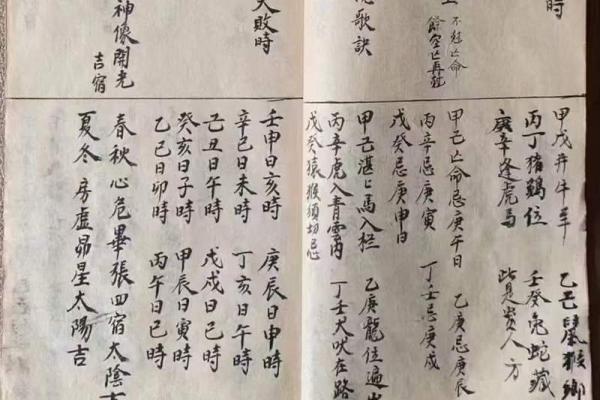 時
不犯亡命
歌訣
甲戊并牛羊 乙己鼠猴鄉
丙丁猪鷄位 壬癸兔蛇藏
庚辛逢虎馬 此是貴人方
甲己亡命忌庚午日 乙庚忌庚辰
丙辛忌庚寅 丁壬忌庚戌
戊癸忌庚申日
甲己湛々馬入栏 乙庚龍位遍
丙辛虎入青雲內 丁壬犬吠在路
戊癸猿猴須切忌
大敗時
神像開光
吉宿
壬申日亥時 庚辰日申時
辛巳日未時 丁亥日午時
己丑日午時 戊戌日巳時
癸亥日子時 甲辰日寅時
乙巳日卯時 丙午日巳時
春秋心危畢張四宿太陰吉
夏冬房虚昴星太陽吉